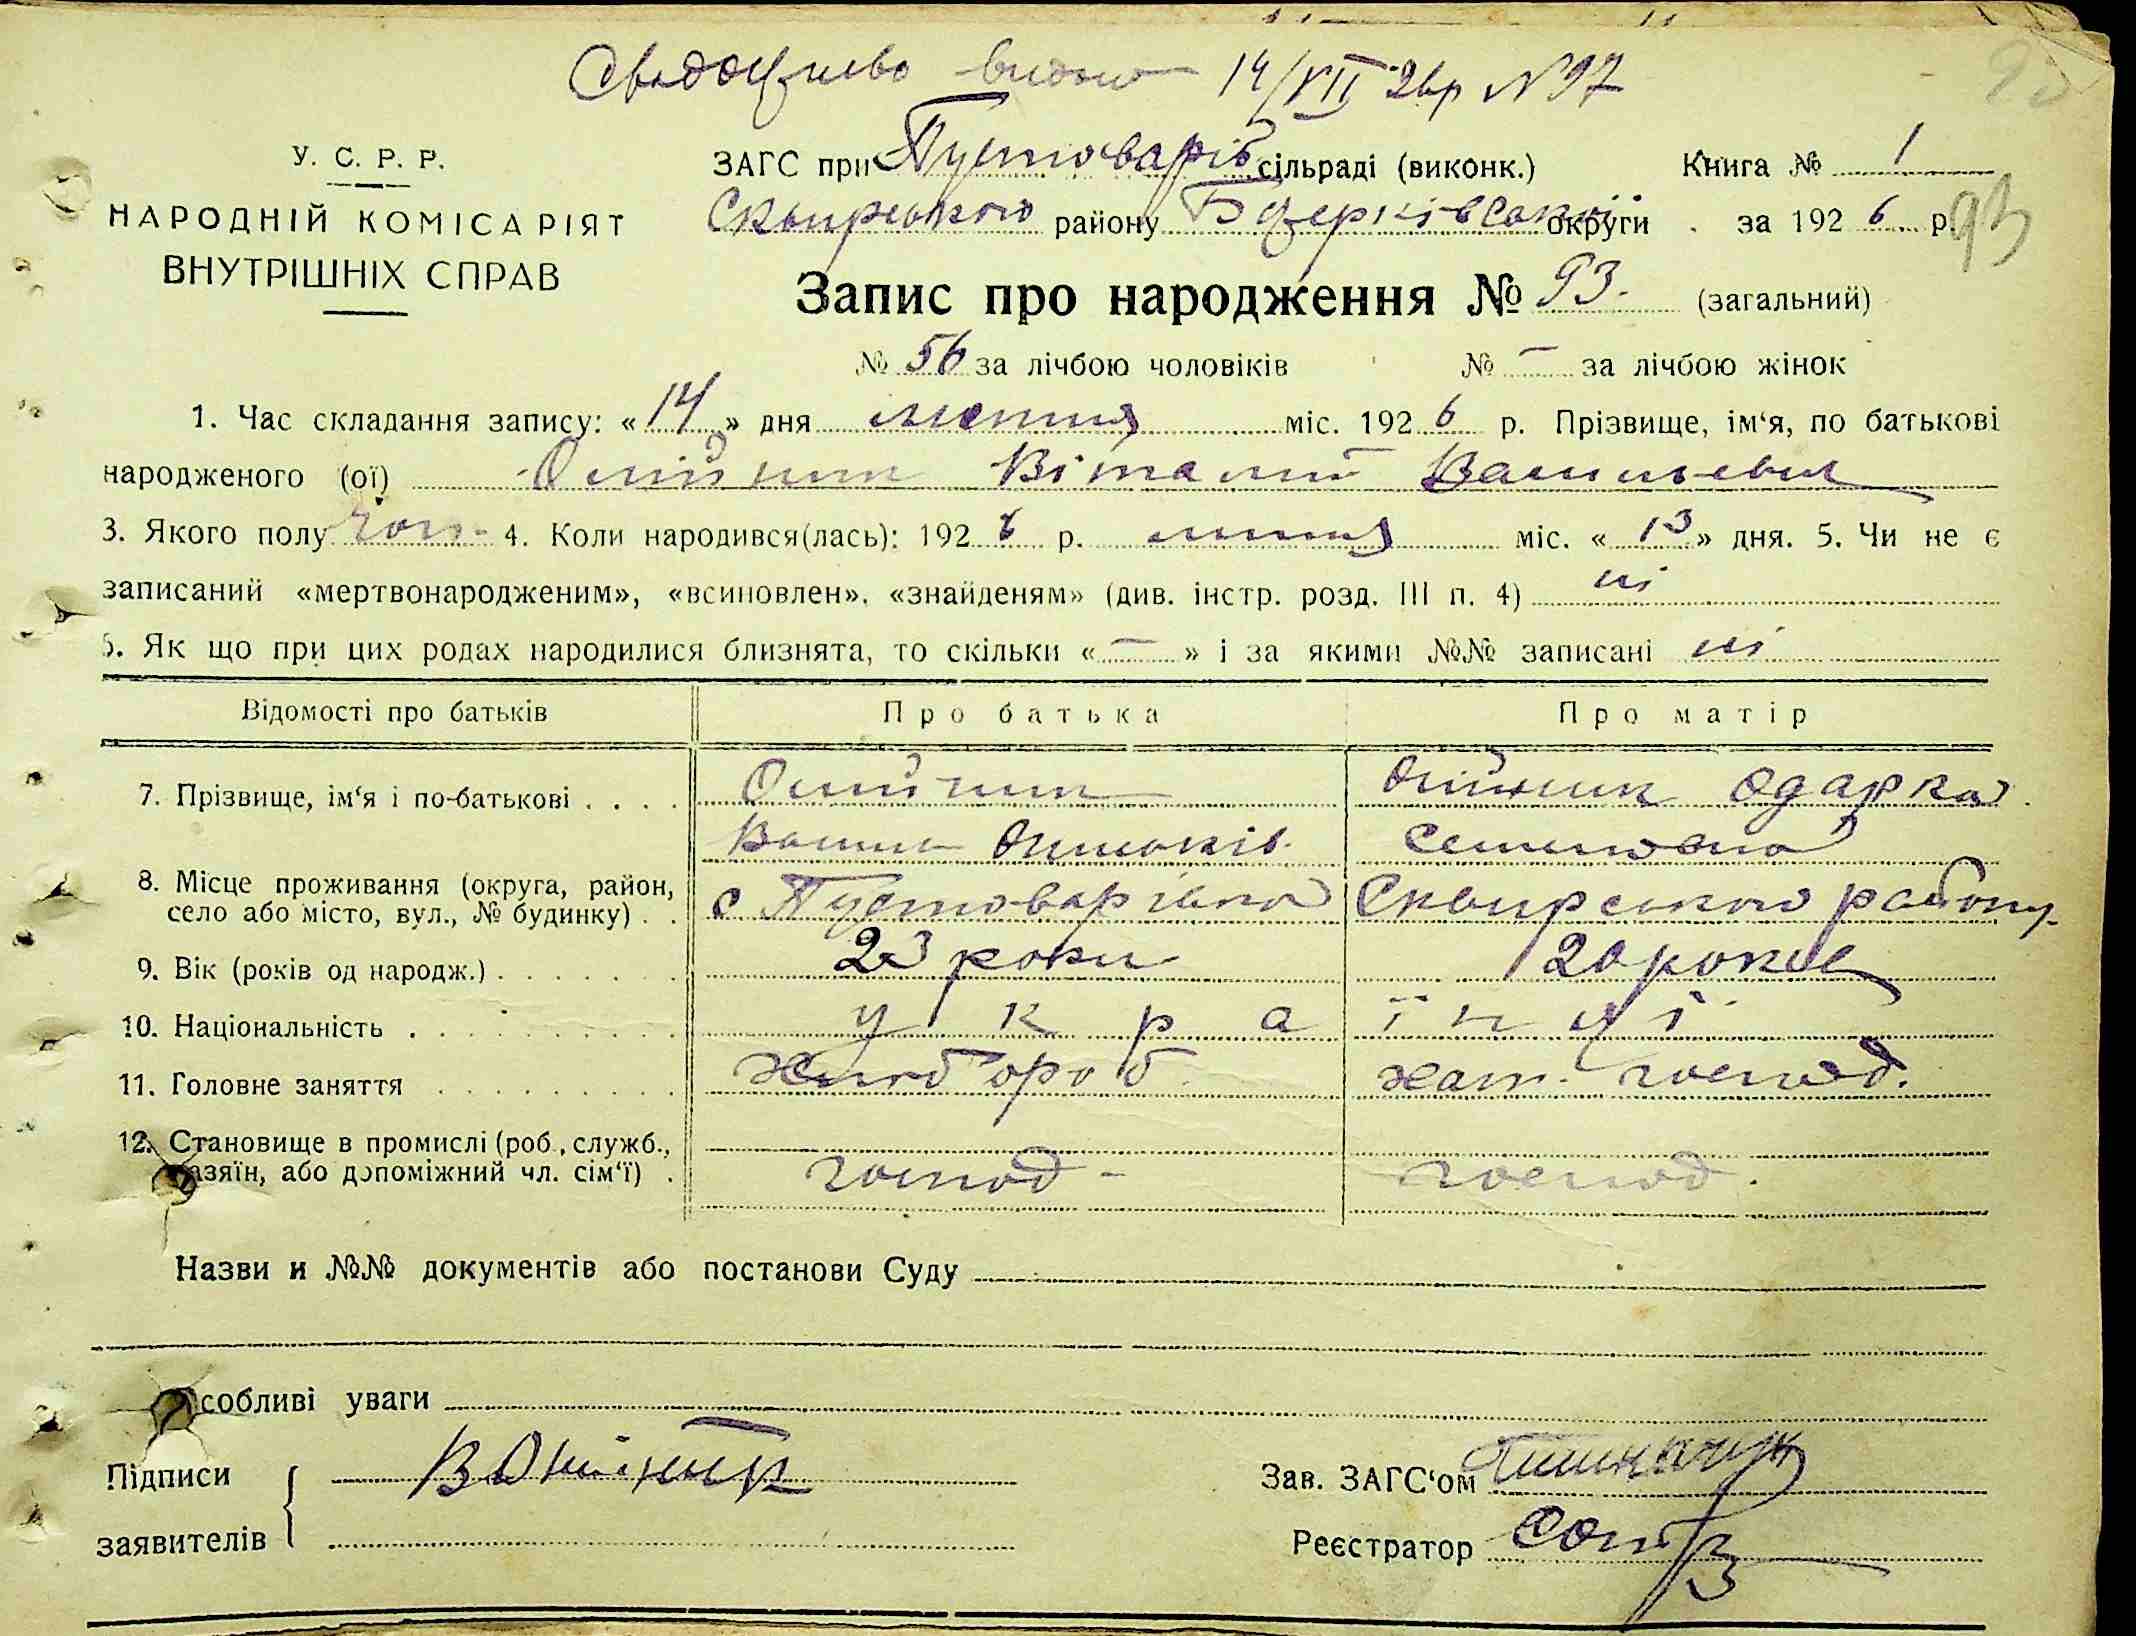 Свидоцтво видано 14/VII 26р №97
У. С. Р. Р.
НАРОДНІЙ КОМІСАРІЯТ
ВНУТРІШНІХ СПРАВ
ЗАГС при Пустоварів сільраді (виконк.) Книга № 1
Сквирського району Б церківської округи за 1926 р. 93
Запис про народження № 93. (загальний)
№ 56 за лічбою чоловіків № — за лічбою жінок
1. Час складання запису: «14» дня липня міс. 1926 р. Прізвище, ім‘я, по батькові
народженого (ої) Олійник Віталій Васильевич
3. Якого полу чол. 4. Коли народився(лась): 1926 р. липня міс. «13» дня. 5. Чи не є
записаний «мертвонародженим», «всиновлен», «знайденям» (див. інстр. розд. III п. 4) ні
6. Як що при цих родах народилися близнята, то скільки «—» і за якими №№ записані ні
Відомості про батьків Про батька Про матір
7. Прізвище, ім‘я і по-батькові . . . . Олийник Олійник Одарка
Василь
8. Місце проживання (округа, район, село або місто, вул., № будинку) . . с Пустоварівка Сквирського району
9. Вік (років од народж.) . . . . . . 23 роки 20 років
10. Національність . . . . . . . . . . укра їнці
11. Головне заняття . . . . . . . . . хлібороб хат. господ.
12. Становище в промислі (роб., служб., хазяїн, або допоміжний чл. сім‘ї) . господ. господ.
Назви и №№ документів або постанови Суду
Особливі уваги
Підписи заявителів В Олійник
Зав. ЗАГС‘ом
Реєстратор